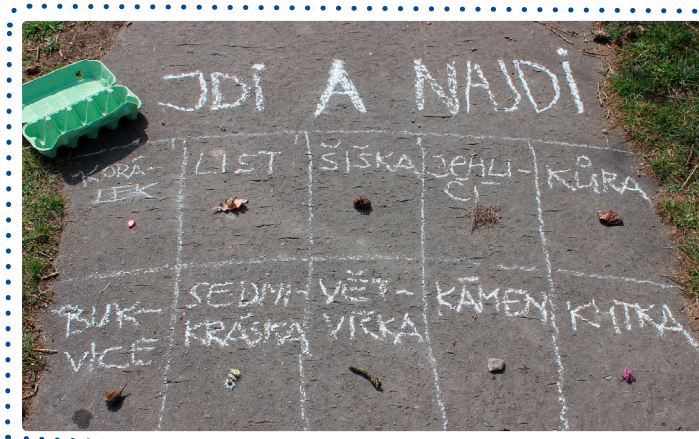 JDI A NAJDI
KORÁ-
LEK
LIST
ŠIŠKA
JEHLI-
ČÍ
KŮRA
BUK-
VICE
SEDMI-
KRÁSKA
VĚT-
VIČKA
KÁMEN
KYTKA